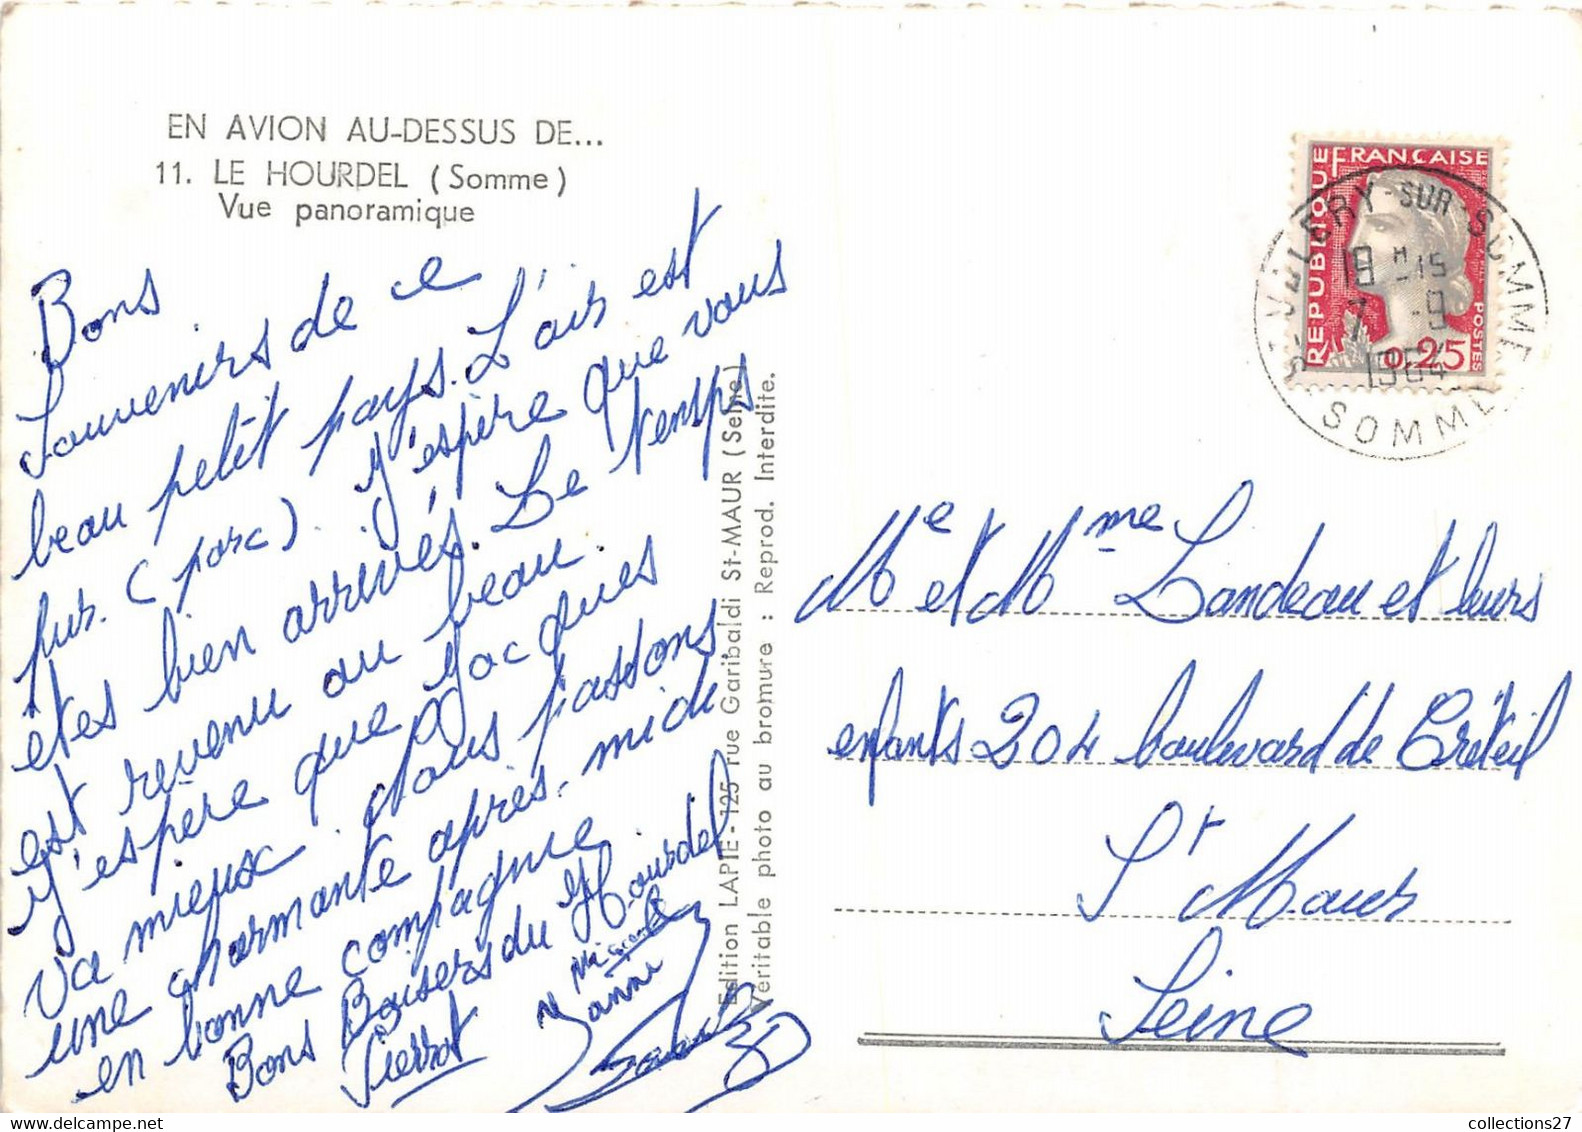 EN AVION AU-DESSUS DE...
11. LE HOURDEL (Somme)
Vue panoramique
Bons
Souvenirs de ce
beau petit pays. L'air est
pur. (porc). J'espère que vous
êtes bien arrivés. Le temps
est revenu au beau.
J'espère que Jacques
va mieux. Nous passons
une charmante après-midi
en bonne compagnie
Bons Baisers du Hourdel
Pierrot
Edition LAPIE - 125 rue Garibaldi St-MAUR (Seine)
Véritable photo au bromure : Reprod. Interdite.
REPUBLIQUE FRANÇAISE
POSTES
0,25
St VALERY-SUR-SOMME
18 H -15
7 -9
1964
SOMME
Me et Mme Landeau et leurs
enfants 204 boulevard de Créteil
St Maur
Seine
collections27